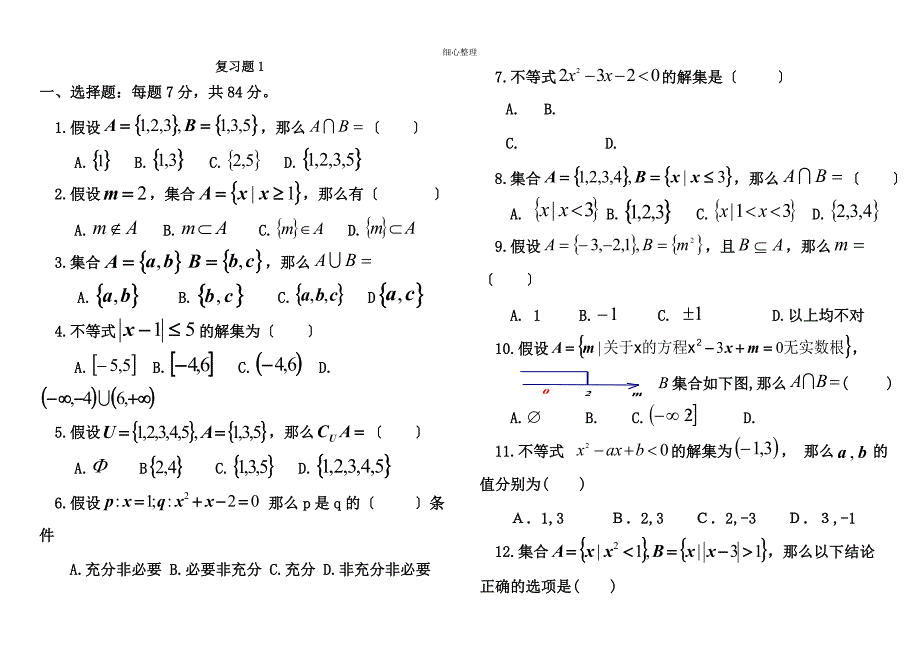 细心整理
复习题1
一、选择题：每题7分，共84分。
1.假设A={1,2,3},B={1,3,5}，那么A∩B=〔 〕
A.{1} B.{1,3} C.{2,5} D.{1,2,3,5}
2.假设m=2，集合A={x|x≥1}，那么有〔 〕
A.m∉A B.m⊂A C.{m}∈A D.{m}⊂A
3.集合A={a,b} B={b,c}，那么A∪B=
A.{a,b} B.{b,c} C.{a,b,c} D{a,c}
4.不等式|x−1|≤5的解集为〔 〕
A.[−5,5] B.[−4,6] C.(−4,6) D.
(−∞,−4)∪(6,+∞)
5.假设U={1,2,3,4,5},A={1,3,5}，那么C_U A=〔 〕
A.Φ B{2,4} C.{1,3,5} D.{1,2,3,4,5}
6.假设p:x=1;q:x²+x−2=0 那么p是q的〔 〕条
件
A.充分非必要 B.必要非充分 C.充分 D.非充分非必要
7.不等式2x²−3x−2<0的解集是〔 〕
A. B.
C. D.
8.集合A={1,2,3,4},B={x|x≤3}，那么A∩B=〔 〕
A.{x|x<3} B.{1,2,3} C.{x|1<x<3} D.{2,3,4}
9.假设A={−3,−2,1},B={m²}，且B⊆A，那么m=
〔 〕
A. 1 B.−1 C. ±1 D.以上均不对
10.假设A={m|关于x的方程x²−3x+m=0无实数根}，
B集合如下图,那么A∩B=( )
0 2 m
A.∅ B. C.(−∞ 2] D.
11.不等式 x²−ax+b<0的解集为(−1,3)， 那么a,b的
值分别为( )
A．1,3 B．2,3 C．2,-3 D．3,-1
12.集合A={x|x²<1},B={x||x−3|>1}，那么以下结论
正确的选项是( )